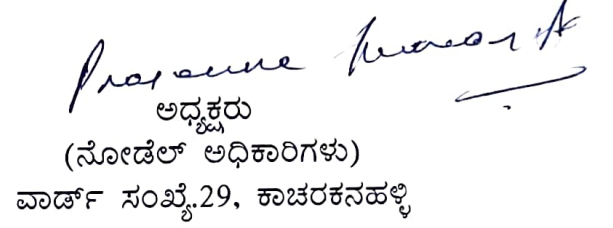 Prasanna Kumar A
ಅಧ್ಯಕ್ಷರು
(ನೋಡೆಲ್ ಅಧಿಕಾರಿಗಳು)
ವಾರ್ಡ್ ಸಂಖ್ಯೆ.29, ಕಾಚರಕನಹಳ್ಳಿ